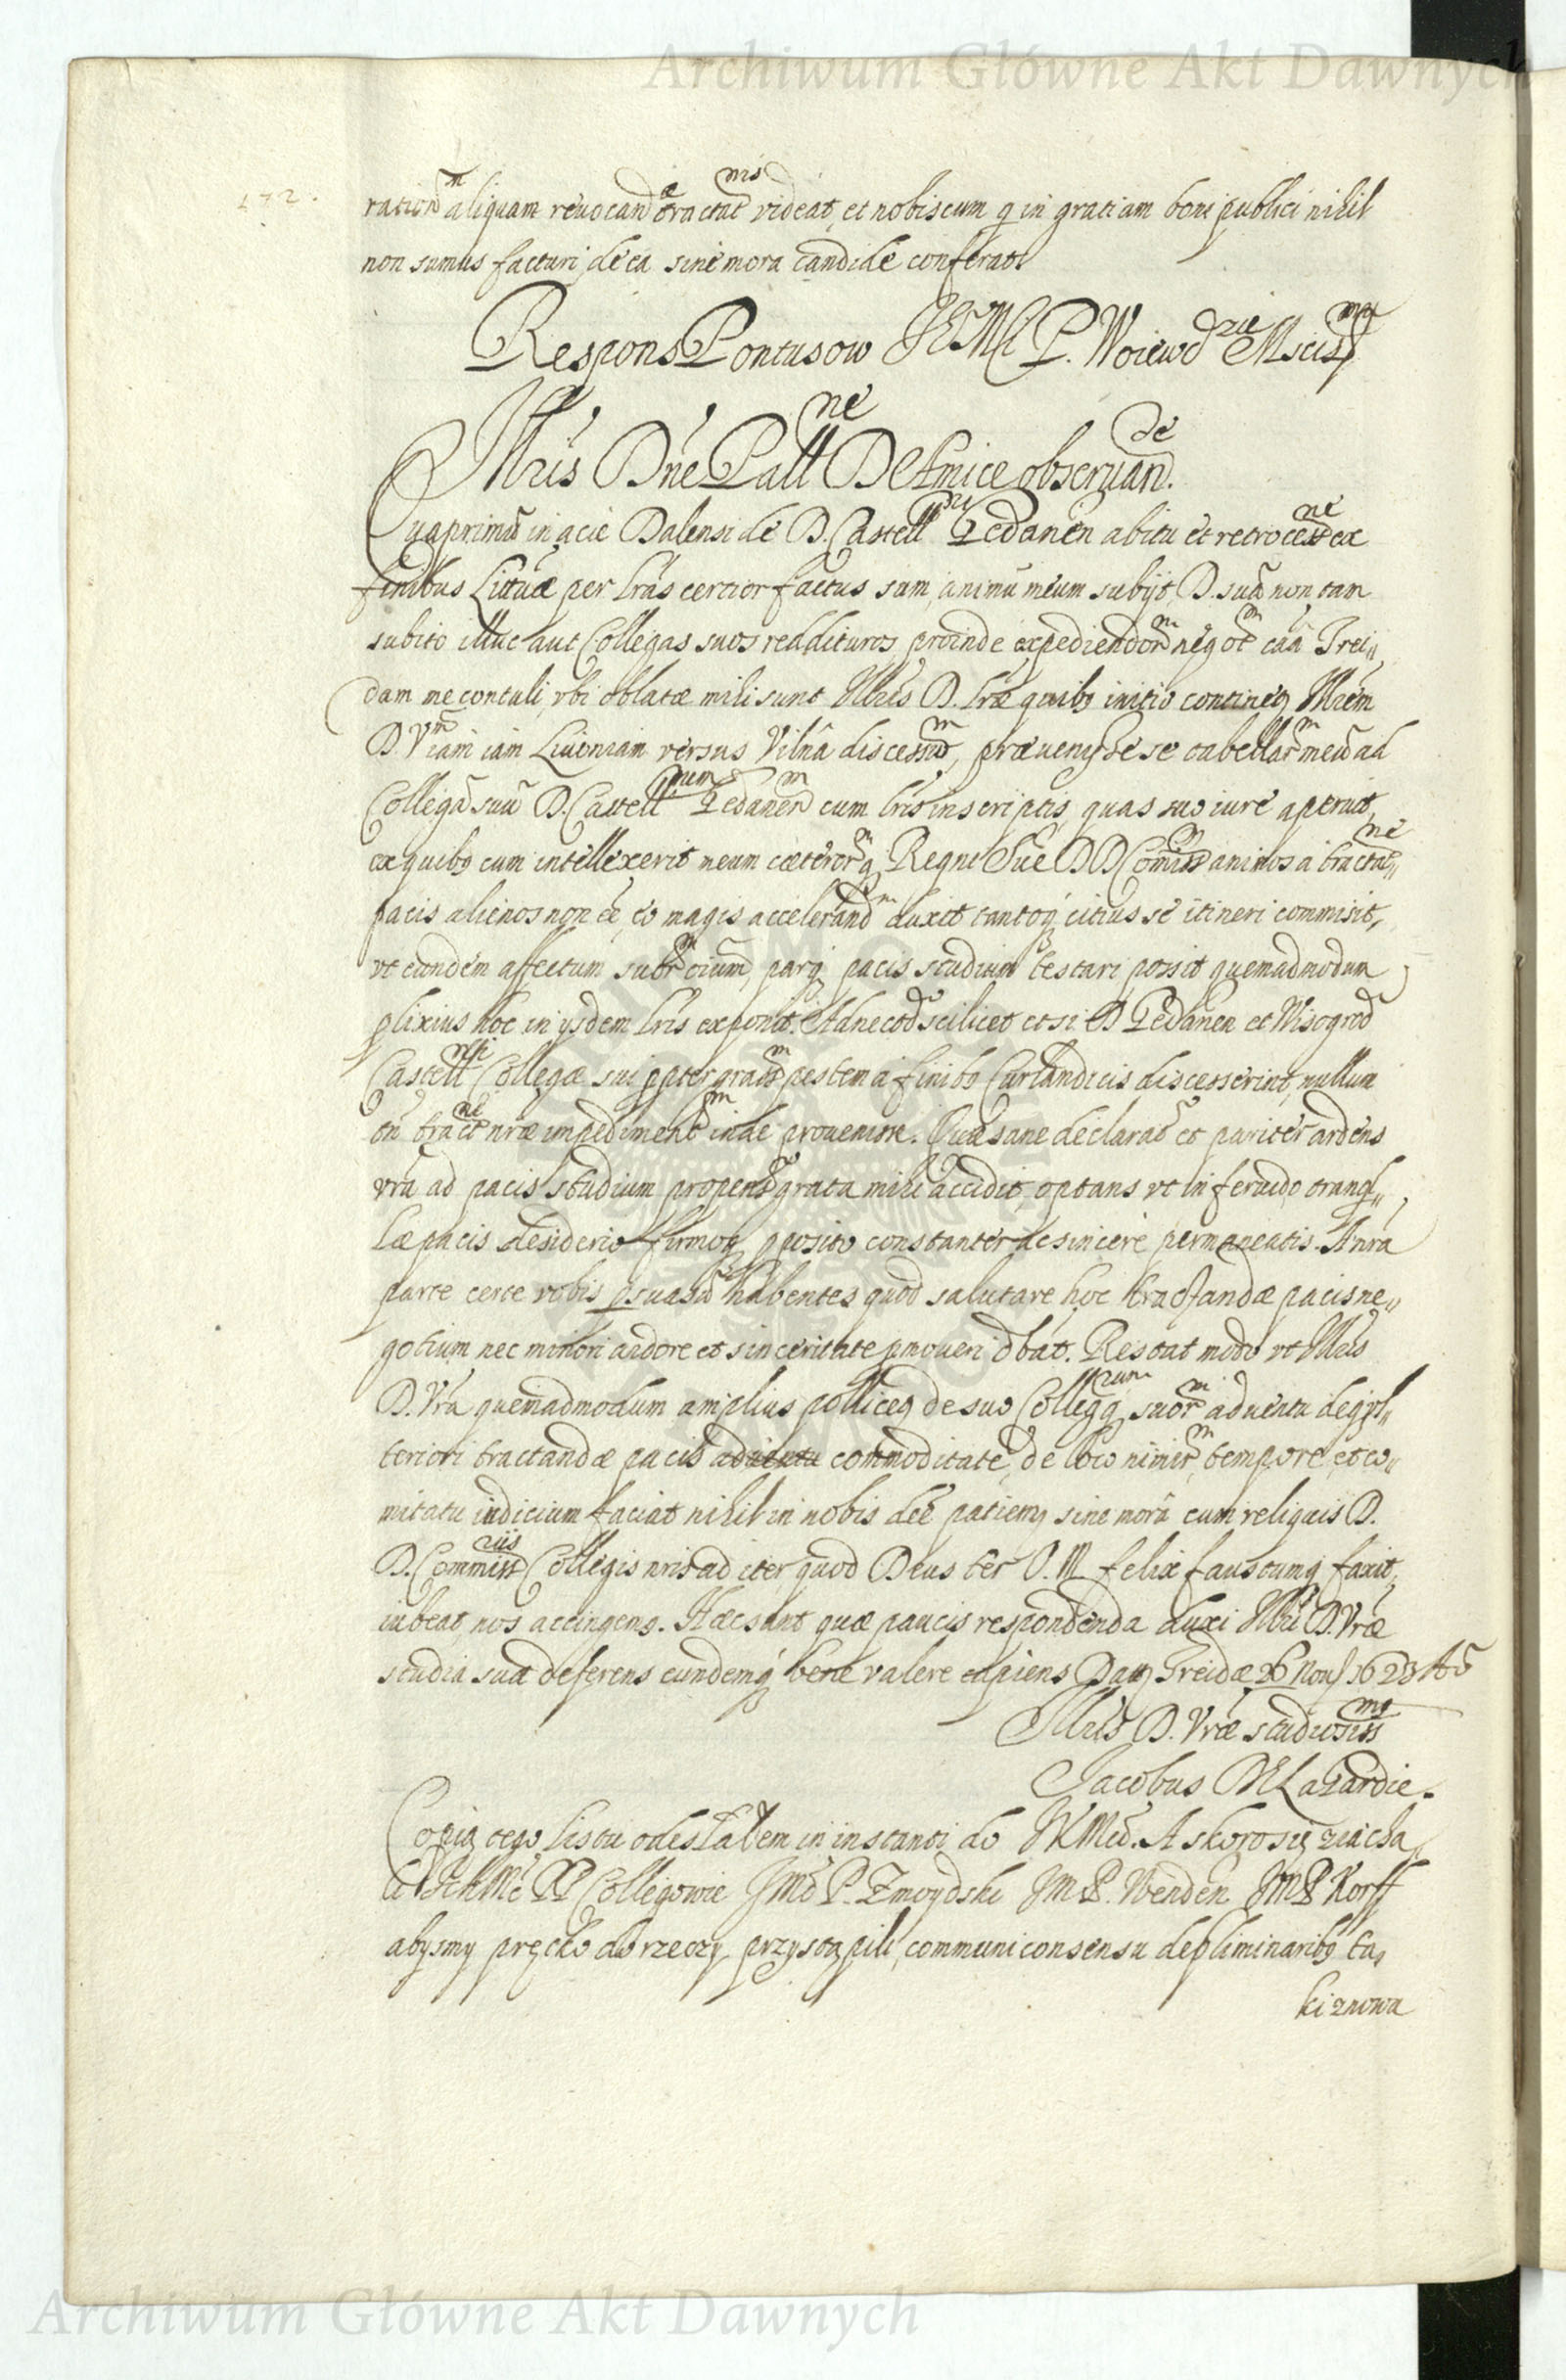 Archiwum Główne Akt Dawnych
172.
ration̄ᵐ aliquam reuocandᵃᵉ tractatⁿⁱˢ videat, et nobiscum q̃ in gratiam boni publici nihil
non sumus facturi, de ea sine mora candide conferat.
Respons Pontusow JEMC P. Woiewdᶻⁱᵉ Mscisᵐᵘ
Illris Dne Pallⁿᵉ D Amice obseruandᵈᵉ.
Quaprimū in acie Dalensi de D. Castellⁿⁱ Gedanen abitu et retrocessⁿᵉ ex
finibus Lituæ per lras certior factus sum, animū meum subijt, D. suā non tam
subito illuc aut Collegas suos reddituros, proinde expediendorᵐ negotᵐ cāā Trei„
dam me contuli, vbi oblatæ mihi sunt Illris D. lræ quibꝰ initio continetᵣ Illrem
D. Vrām iam Liuoniam versus Vilnā discessurᵐ, præuenisse se tabellarᵐ meū ad
Collegā suū D. Castellⁿᵘᵐ Gedanenᵐ cum lris inscriptis, quas suo iure aperuit,
ex quibꝰ cum intellexerit meum cæterorᵐq̃ Regni Sue D D Comissᵐ animos a tractatⁿᵉ„
pacis alienos non eē, eo magis accelerandᵐ duxit tantoq̃ citius se itineri commisit,
vt eundem affectum suorᵐ oium, parq̃ pacis studium testari possit quemadmodum
plixius hoc in ijsdem lris exponit. Adnectᵈᵒ scilicet etsi D Gedanen et Wisogrod
Castellⁿⁱ Collegæ sui ppter grassᵐ pestem a finibꝰ Curlandicis discesserint, nullum
tn̄ tractⁿⁱ nræ impedimentᵐ inde prouenisse. Quæ sane declarat̄ et pariter ardens
vrā ad pacis studium propensⁱᵒ grata mihi accidit, optans vt in feruido tranql„
læ pacis desiderio firmoq̃ pposito constanter ac sincere permaneatis. A nrā
parte certe vobis psuasū habentes quod salutare hoc tractandæ pacis ne„
gotium nec minori ardore et sinceritate pmoueri dbat. Restat modo vt Illris
D. Vrā quemadmodum amplius pollicetᵣ de suo Collegᵣᵘᵐq̃ suorᵐ aduentu deq̃ vl„
teriori tractandæ pacis aduentu commoditate, de loco nimirᵐ, tempore, et co„
mitatu indicium faciat nihil in nobis deē patiemᵣ sine morā cum reliquis D.
D. Commissʳⁱⁱˢ Collegis nris ad iter, quod Deus ter O. M. felix faustumq̃ faxit,
iubeat, nos accingens. Hæc sunt quæ paucis respondenda duxi Illri D. Vræ
studia sua deferens eundemq̃ bene valere cupiens Datᵣ Treidæ 26 Nou 1623 Aō
Illris D. Vræ studiosissᵐᵘˢ
Jacobus DeLaGardie.
Copią tego listu odesłałem in instanti do WMci. A skoro się ziácha„
li IchMć PP Collegowie JMć P. Zmoydski JM P. Wenden JMP Korff
abysmy prętko do rzeczy przystąpili, communi consensu de pliminaribꝰ ta„
ki znowu
Archiwum Główne Akt Dawnych